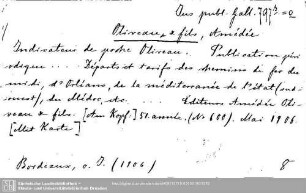 Oec. publ. Gall. 797 h = 0
Oliveau & fils, Amédée
Indicateur de poche Oliveau. Publication péri-
odique ... Départs et tarifs des chemins de fer du
midi, d'Orléans, de la méditerranée de l'état (
), du Médoc, etc. ... Editeurs Amédée Oli-
veau & fils. [Am Kopf:] 51. année. (No 600). Mai 1906.
[Mit Karte]
Bordeaux, o. J. (1906) 8°
Sächsische Landesbibliothek -
Staats- und Universitätsbibliothek Dresden